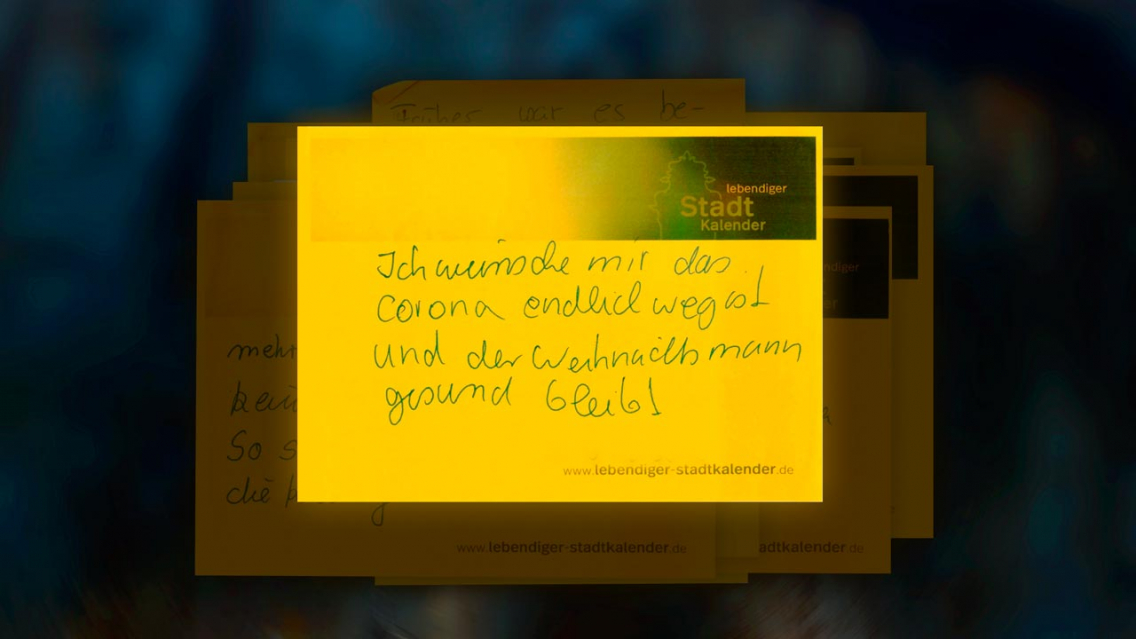 Früher war es be-
lebendiger
Stadt
Kalender
Ich wünsche mir das
Corona endlich weg ist
und der Weihnachtsmann
gesund bleibt
www.lebendiger-stadtkalender.de
mehr
So s
die
www.lebendiger-stadtkalender.de
adtkalender.de